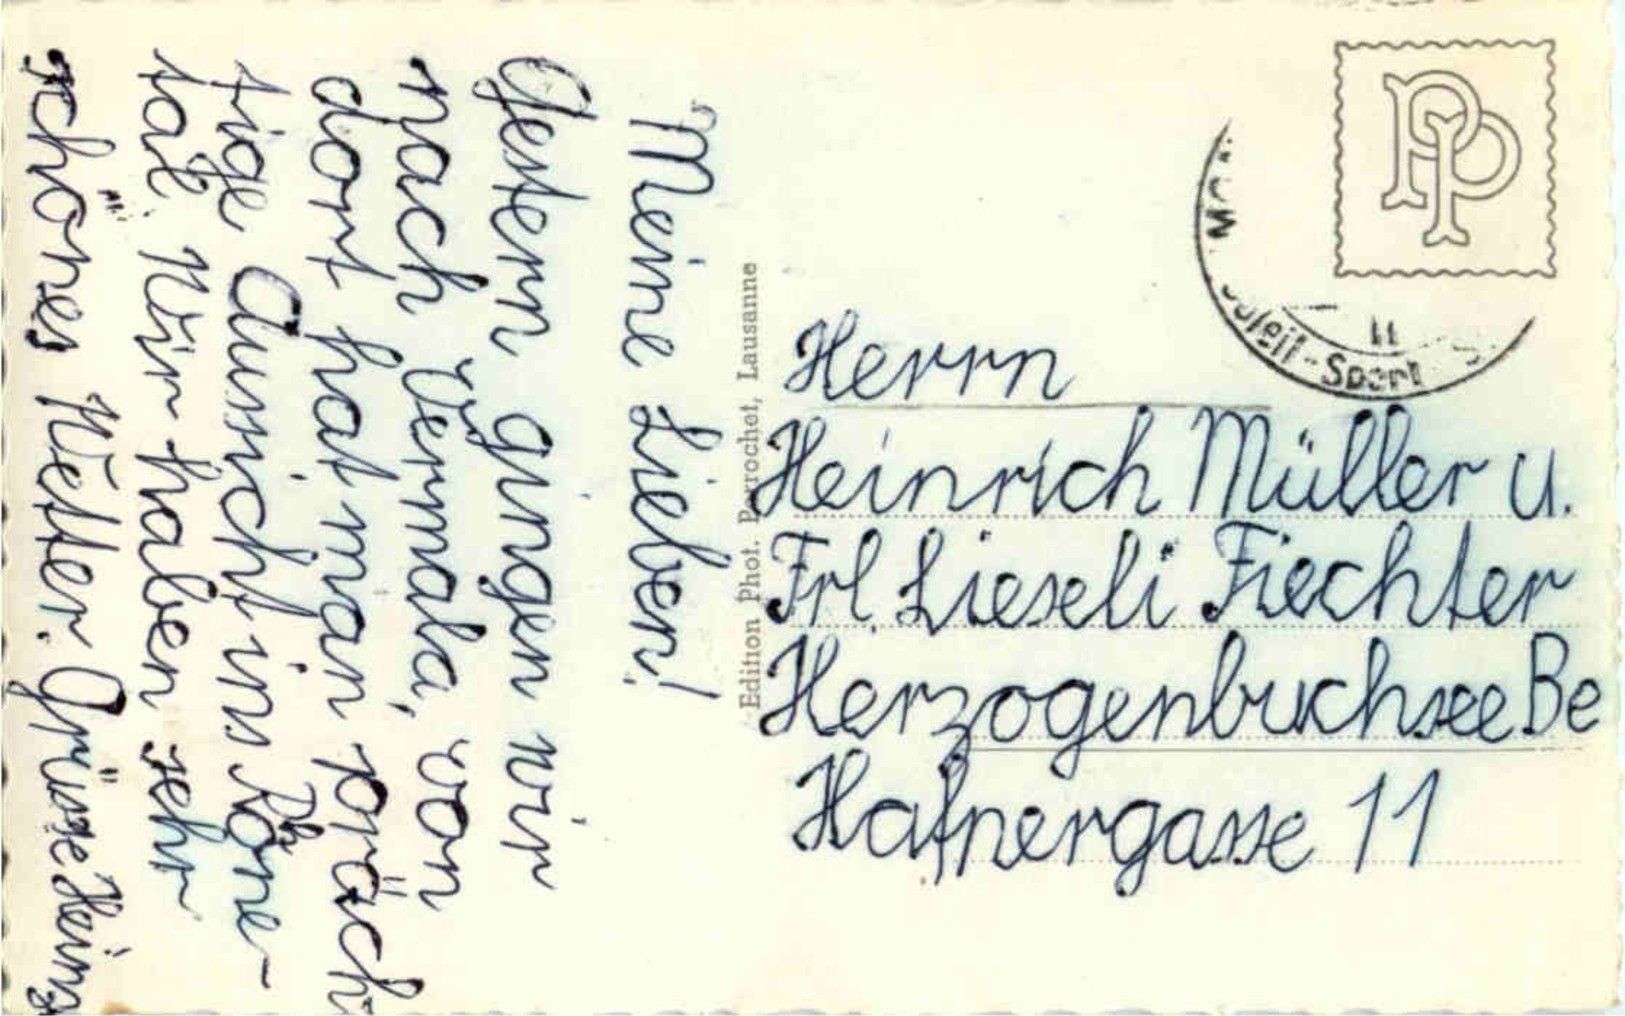 Meine Lieben!
Gestern gingen wir
nach Vermala, von
dort hat man präch
tige Aussicht ins Rhone-
tal. Wir haben sehr
schönes Wetter. Grüsse Heinz
Edition Phot. Perrochet, Lausanne
PP
Soleil-Sport
Herrn
Heinrich Müller u.
Frl. Lieseli Fiechter
Herzogenbuchsee Be
Hafnergasse 11